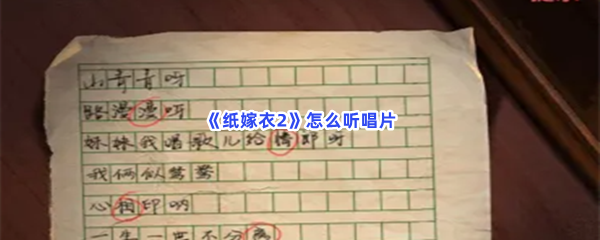 山青青呀
路漫漫呀
《纸嫁衣2》怎么听唱片
妹妹我唱歌儿给情郎听
我俩似鸳鸯
心相印呐
一生一世不分离